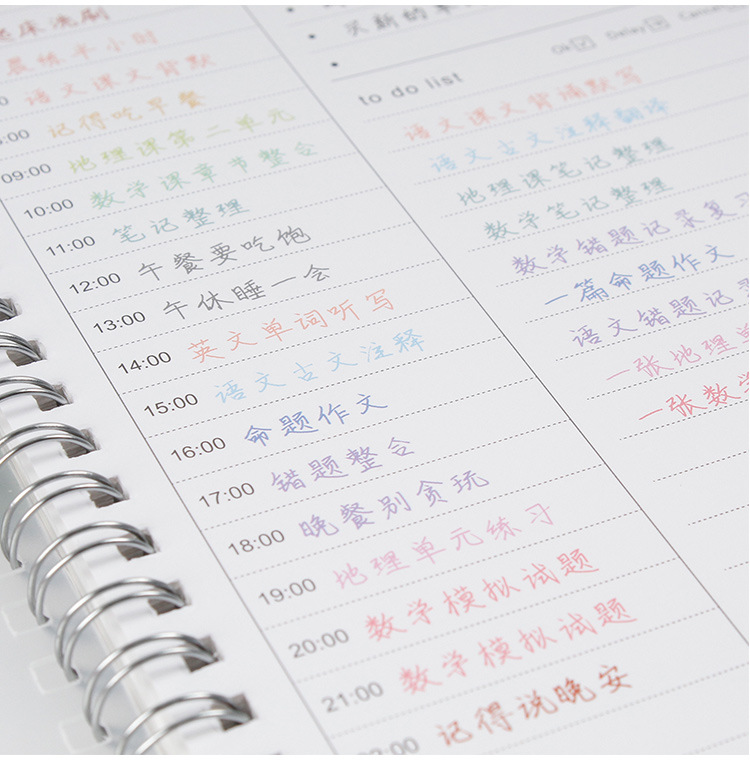 床洗刷
晨练半小时
语文课文背默
:00 记得吃早餐
09:00 地理课第二单元
10:00 数学课章节整合
11:00 笔记整理
12:00 午餐要吃饱
13:00 午休睡一会
14:00 英文单词听写
15:00 语文古文注释
16:00 命题作文
17:00 错题整合
18:00 晚餐别贪玩
19:00 地理单元练习
20:00 数学模拟试题
21:00 数学模拟试题
:00 记得说晚安
买新的
Ok Delay
to do list
语文课文背诵默写
语文古文注释翻译
地理课笔记整理
数学笔记整理
数学错题记录复习
一篇命题作文
语文错题记录
一张地理单
一张数学